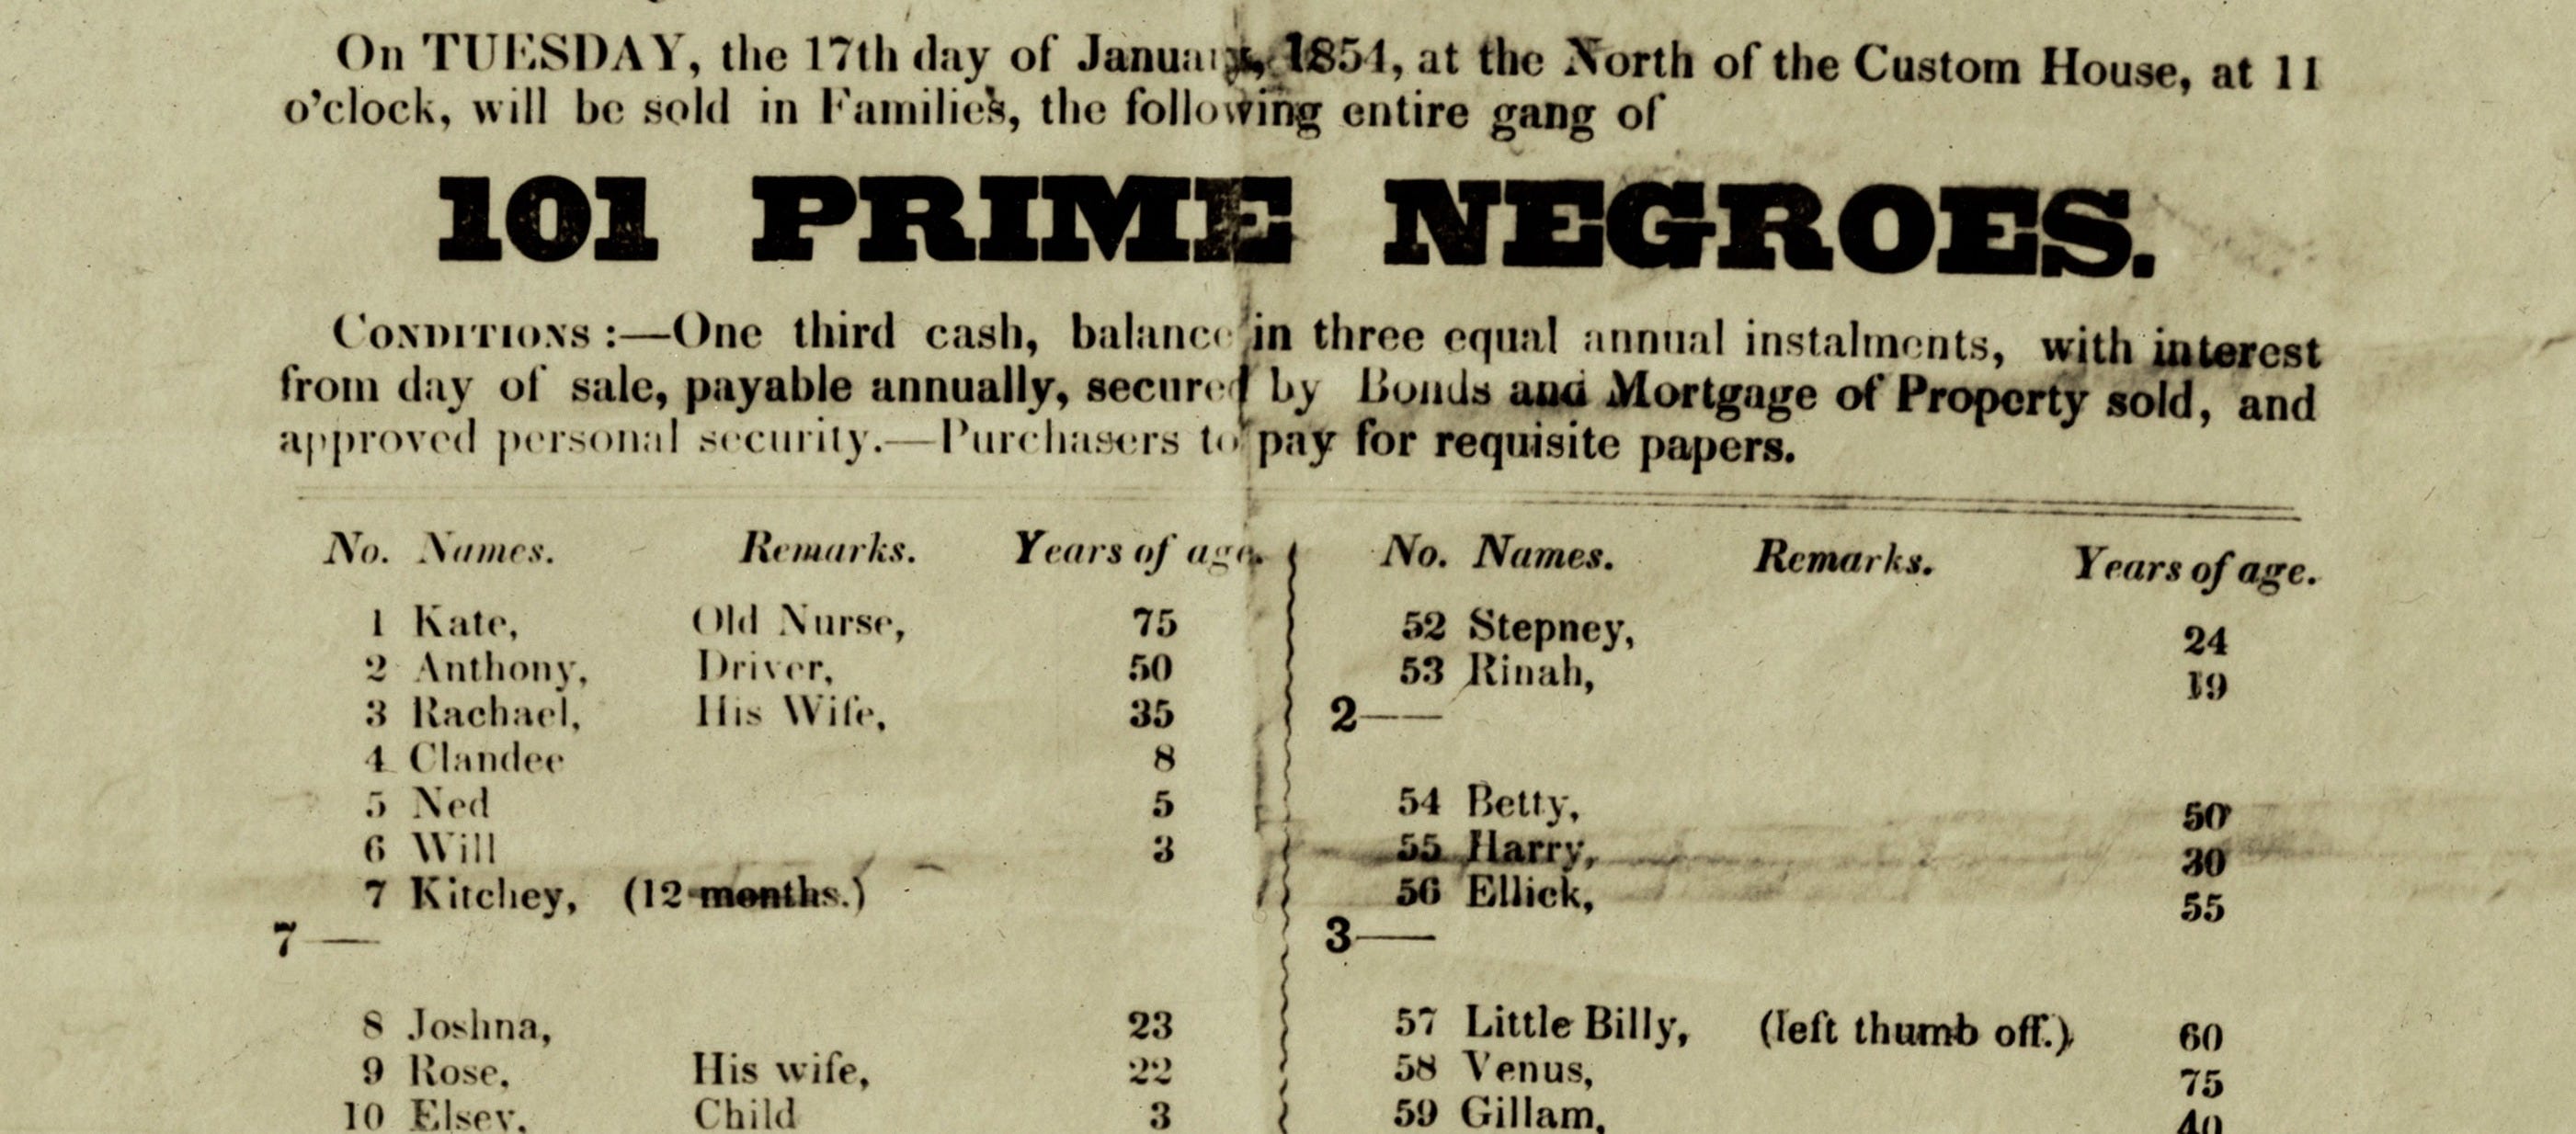 On TUESDAY, the 17th day of January, 1854, at the North of the Custom House, at 11
o'clock, will be sold in Families, the following entire gang of
101 PRIME NEGROES.
CONDITIONS:—One third cash, balance in three equal annual instalments, with interest
from day of sale, payable annually, secured by Bonds and Mortgage of Property sold, and
approved personal security.—Purchasers to pay for requisite papers.
No. Names. Remarks. Years of age.
1 Kate, Old Nurse, 75
2 Anthony, Driver, 50
3 Rachael, His Wife, 35
4 Clandee 8
5 Ned 5
6 Will 3
7 Kitchey, (12 months.)
7—
8 Joshna, 23
9 Rose, His wife, 22
10 Elsey, Child 3
No. Names. Remarks. Years of age.
52 Stepney, 24
53 Rinah, 19
2—
54 Betty, 50
55 Harry, 30
56 Ellick, 55
3—
57 Little Billy, (left thumb off.) 60
58 Venus, 75
59 Gillam, 40